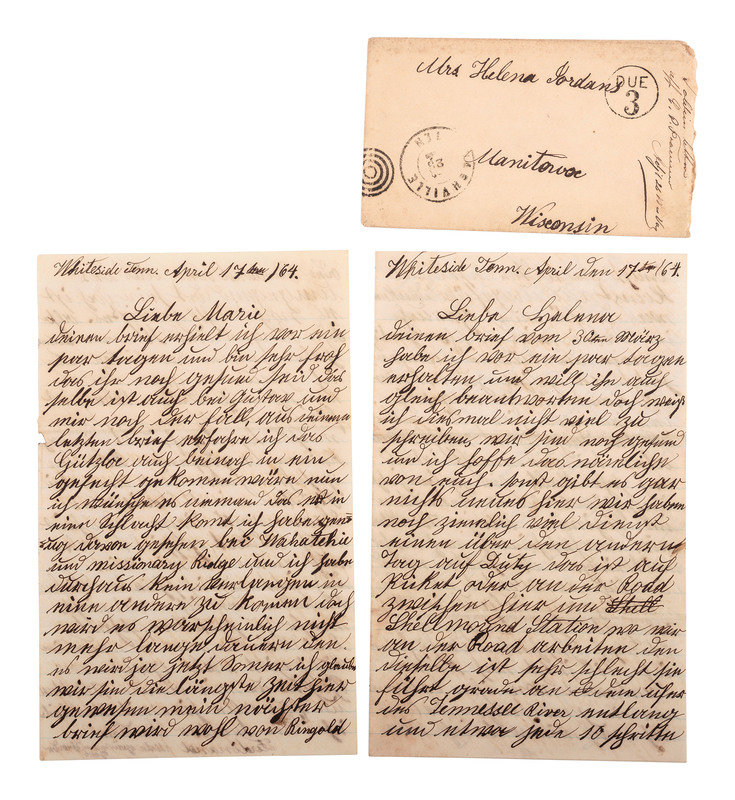 Mrs Helena Jordans
DUE
3
Manitowoc
Wisconsin
Whiteside Tenn. April 17 /64.
Liebe Marie
deinen brief erhielt ich vor ein
par tagen und bin sehr froh
das ihr noch gesund seid das
selbe ist auch bei Gustav und
mir noch der fall, aus deinem
letzten brief erfahre ich das
Gützloe auch beinah in ein
gefecht gekommen wäre nun
ich wünsche es nemand das in
eine Schlacht komt ich habe genu
zug davon gesehen bei Wahatchie
und missionary Ridge und ich habe
durchaus kein verlangen in
eine andere zu komen doch
wird es warscheinlich nicht
mehr lange dauern den
es wird ja jetzt Somer ich glaube
wir sind die längste zeit hier
gewesen mein nächster
brief wird wohl von Ringold
Whiteside Tenn. April den 17 /64.
Liebe Helena
deinen brief vom 30ten März
habe ich vor ein par tagen
erhalten und will ihn auch
gleich beantworten doch weiß
ich diesmal nicht viel zu
schreiben, wir sind noch gesund
und ich hoffe das nämliche
von euch. sonst gibt es gar
nichts neues hier wir haben
noch ziemlich viel dienst
einen über den andern
tag auf Duty das ist auf
Picket oder an der Road
zwischen hier und Shell
Shellmound Station wo wir
an der Road arbeiten den
dieselbe ist sehr schlecht sie
führt grade an dem ufer
des Tennessee River entlang
und etwa jede 10 schritte